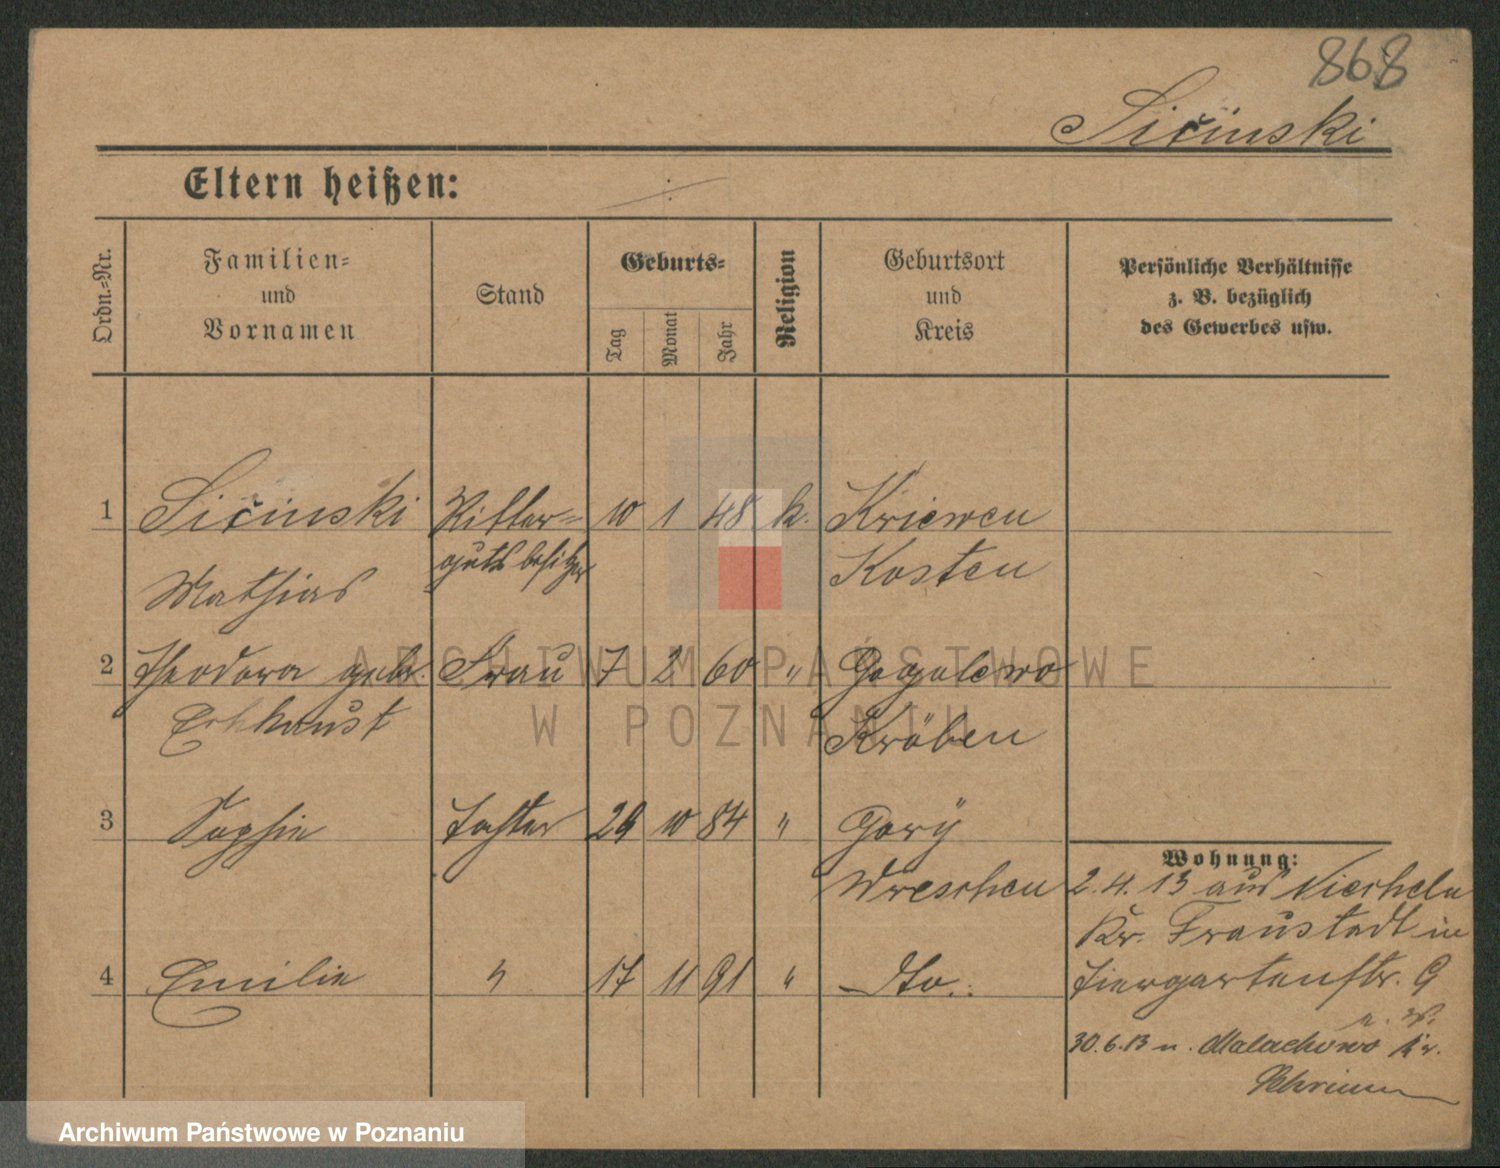 868
Sičinski
Eltern heißen:
Ordn.-Nr.
Familien-
und
Vornamen
Stand
Geburts-
Tag
Monat
Jahr
Religion
Geburtsort
und
Kreis
Persönliche Verhältnisse
z. B. bezüglich
des Gewerbes usw.
1 Sičinski Ritter- 10 1 48 k. Kriewen
Mathias gutsbesitzer Kosten
2 Theodora geb. Frau 7 2 60 " Gogolewo
Kröben
3 Sophie Tochter 29 10 84 " Gory
Wreschen
4 Emilie " 17 11 91 " dto.
Wohnung:
2.4.13 aus
Kr. Fraustadt in
Tiergartenstr. 9
30.6.13 n. Malachowo Kr.
Schrimm
ARCHIWUM PAŃSTWOWE
W POZNANIU
Archiwum Państwowe w Poznaniu